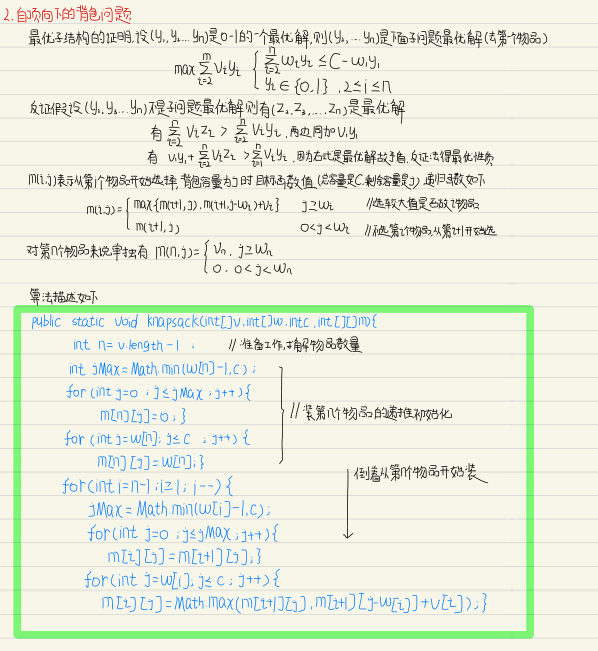 2.自顶向下的背包问题
最优子结构的证明,设(y₁,y₂...yₙ)是0-1的一个最优解,则(y₂,...yₙ)是下面子问题最优解(去第一个物品)
max ∑ᵢ₌₂ⁿ vᵢyᵢ { ∑ᵢ₌₂ⁿ wᵢyᵢ ≤ C-w₁y₁
yᵢ∈{0,1}, 2≤i≤n
反证假设(y₂,y₃...yₙ)不是子问题最优解则有(z₂,z₃,...zₙ)是最优解
有 ∑ᵢ₌₂ⁿ vᵢzᵢ > ∑ᵢ₌₂ⁿ vᵢyᵢ 两边同加v₁y₁
有 v₁y₁+∑ᵢ₌₂ⁿ vᵢzᵢ >∑ᵢ₌₁ⁿ vᵢyᵢ 因为右式是最优解故矛盾,反证法得最优性质
m(i,j)表示从第i个物品开始选择,背包容量为j时目标函数值(总容量是C,剩余容量是j)递归函数如下
m(i,j)={ max{m(i+1,j),m(i+1,j-wᵢ)+vᵢ} j≥wᵢ //选较大值是否放i物品
m(i+1,j) 0<j<wᵢ //不选第i个物品,从第i+1开始选
对第n个物品来说单独有 m(n,j)={ vₙ, j≥wₙ
0, 0<j<wₙ
算法描述如下
public static void knapsack(int[]v,int[]w,int c,int[][]m){
int n= v.length-1 ; //准备工作,了解物品数量
int jMax=Math.min(w[n]-1,c);
for(int j=0 ;j≤jMax ;j++){
m[n][j]=0;} //装第n个物品的递推初始化
for(int j=w[n];j≤c ;j++){
m[n][j]=w[n];}
for(int i=n-1;i≥1;i--){ 倒着从第n个物品开始装
jMax=Math.min(w[i]-1,c);
for(int j=0 ;j≤jMax;j++){
m[i][j]=m[i+1][j];}
for(int j=w[i];j≤c;j++){
m[i][j]=Math.max(m[i+1][j],m[i+1][j-w[i]]+v[i]);}